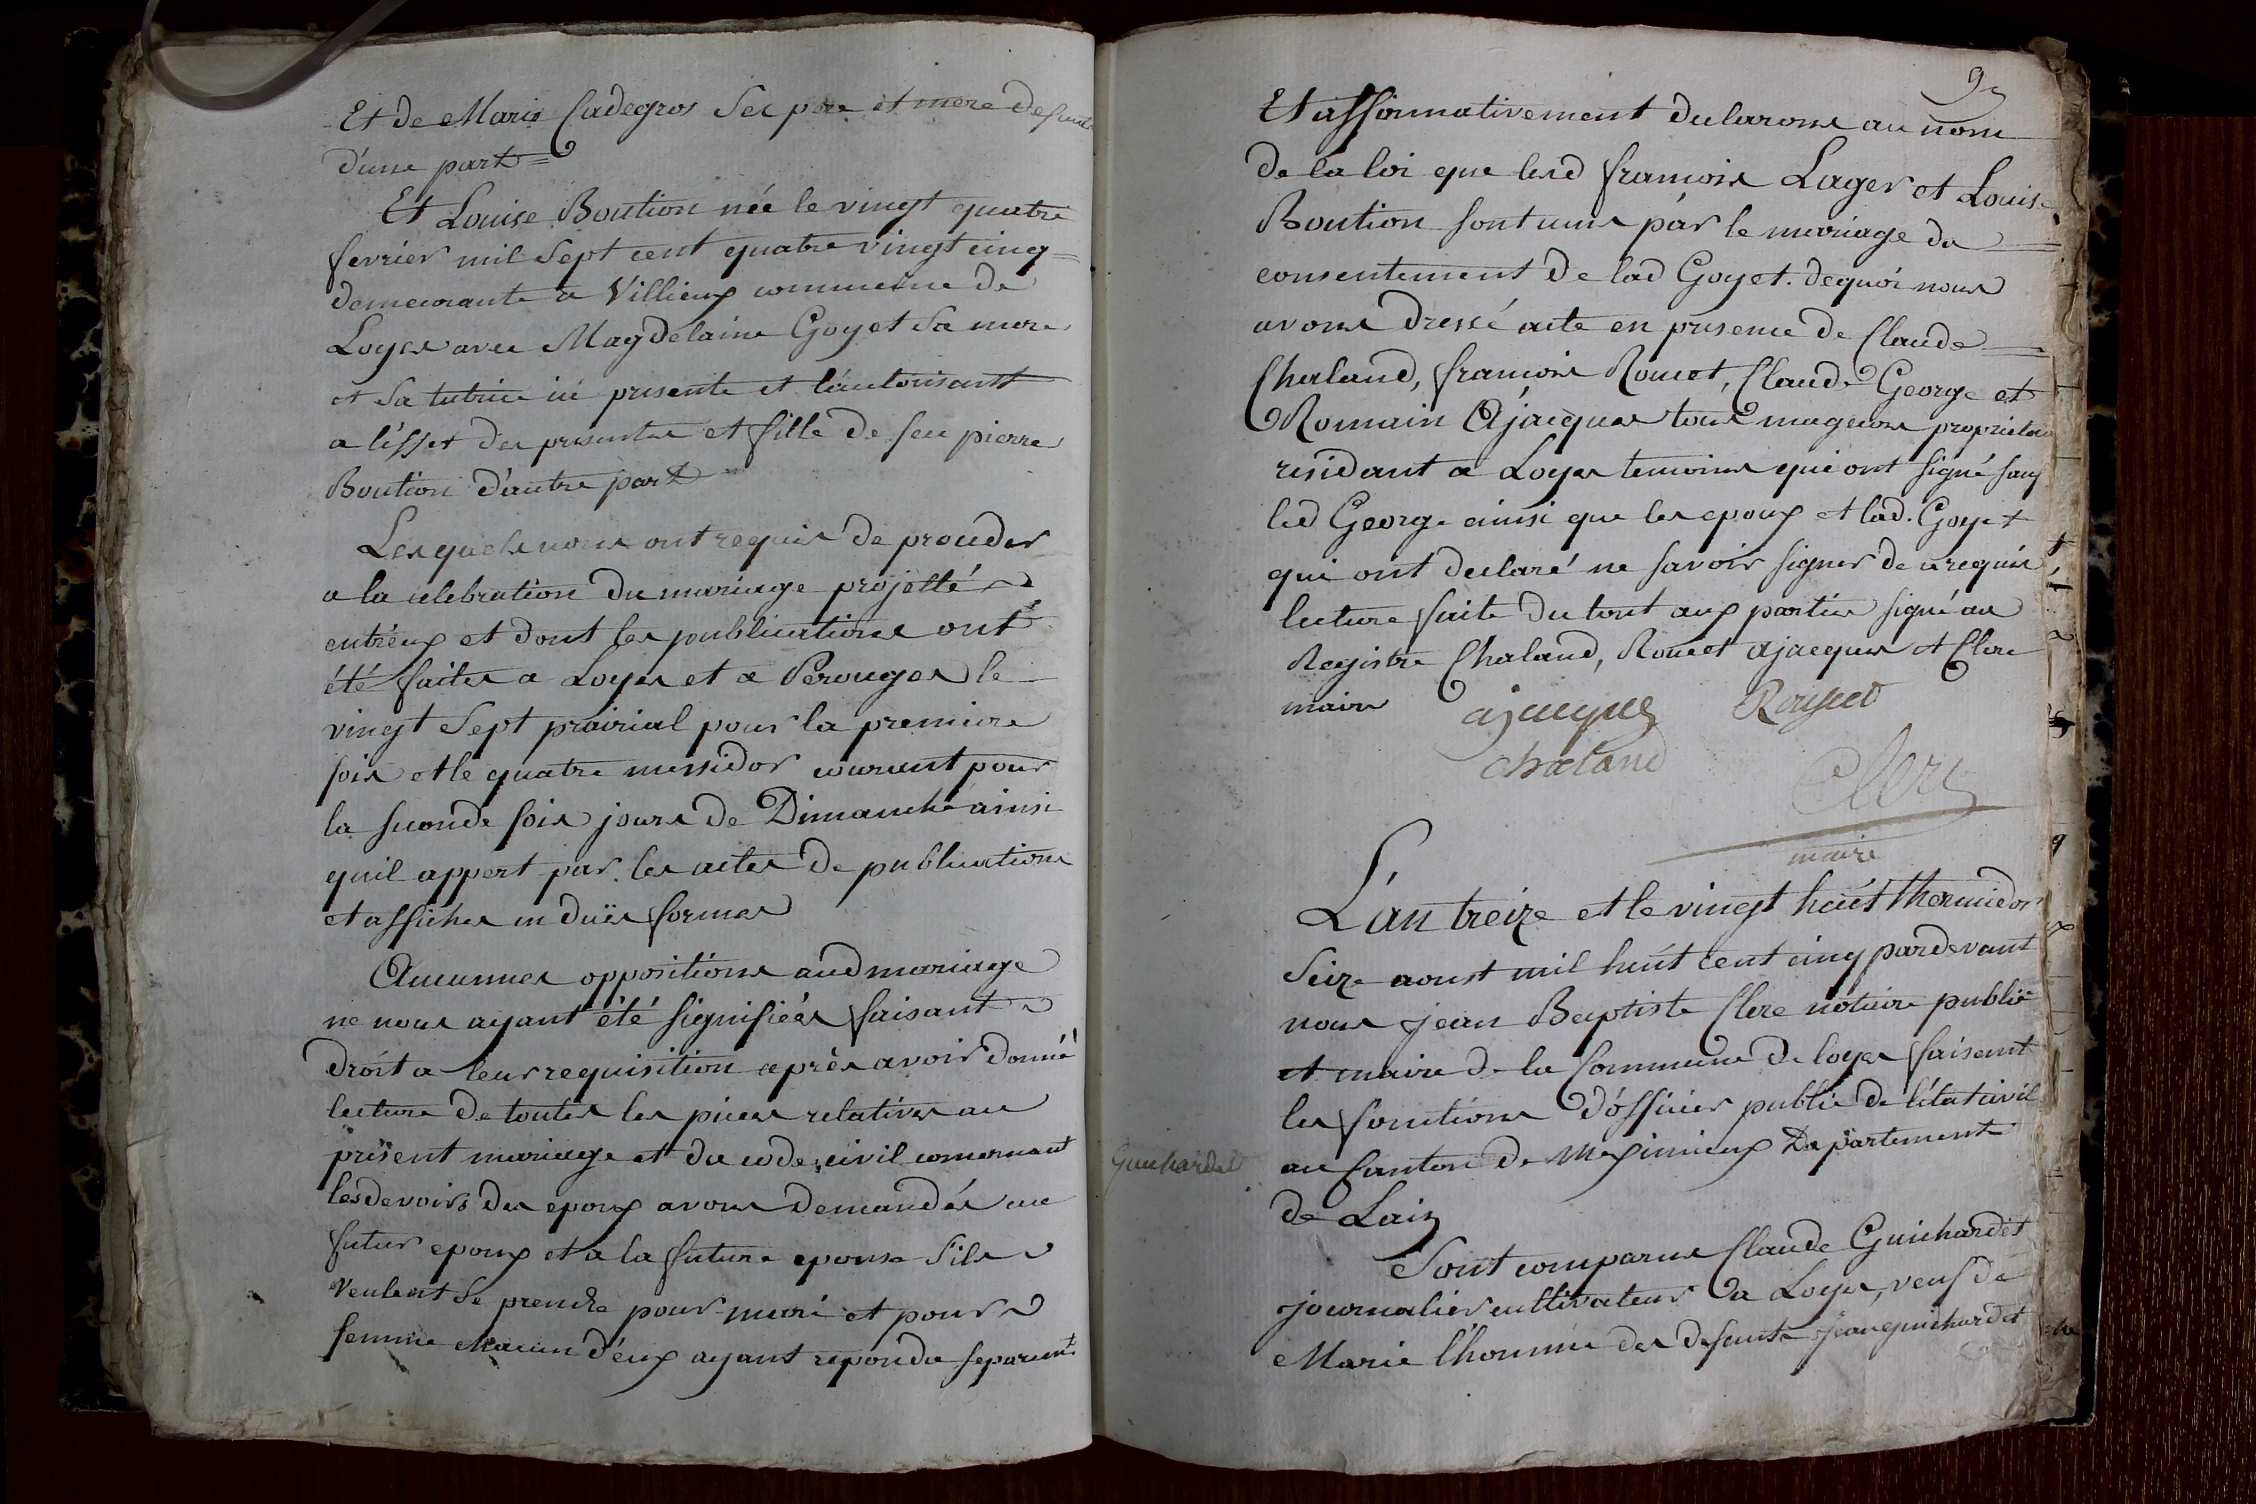 Et de Marie Cadegros ses pere et mere defunts
d'une part =
Et Louise Boution née le vingt quatre
fevrier mil sept cent quatre vingt cinq =
demeurante a Villieux commune de
Loyes avec Magdelaine Goyet sa mere
et sa tutrice ici presente et l'autorisant
a l'effet des presentes et fille de feu pierre
Boution d'autre part
Lesquels nous ont requis de proceder
a la celebration du mariage projetté
entr'eux et dont les publications ont
été faites a Loyes et a Perouges le
vingt sept prairial pour la premiere
fois et le quatre messidor courant pour
la seconde fois jours de Dimanche ainsi
quil appert par les actes de publications
et affiches en duës formes
Aucunnes oppositions aud mariage
ne nous ayant été signifiées faisant
droit a leur requisition après avoir donné
lecture de toutes les pieces relatives au
présent mariage et du code civil concernant
les devoirs des epoux avons demandés au
futur epoux et a la future epouse s'ils
veulent se prendre pour mari et pour
femme chacun d'eux ayant repondu separemt
93
Et affirmativement declarons au nom
de la loi que lesd françois Lager et Louise
Boution sont unis par le mariage du =
consentement de lad Goyet. dequoi nous
avons dressé acte en presence de Claude =
Chaland, françois Roucet, Claude George et
Romain Ajacques tous mageurs proprietaires
residant a Loyes temoins qui ont signé sauf
led George ainsi que les epoux et lad. Goyet
qui ont declaré ne savoir signer de ce requis
lecture faite du tout aux parties signé au
Registre Chaland, Roucet ajacques et Clerc
maire
ajacques
chaland
Clerc
maire
L'an treize et le vingt huit thermidor
seize aoust mil huit cent cinq pardevant
nous jean Baptiste Clerc notaire public
et maire de la Commune de loyes faisant
les fonctions d'officier public de l'état civil
au Canton de Meximieux Departement
de Lain
Guichardet
Sont comparus Claude Guichardet
journalier cultivateur a Loyes, veuf de
Marie l'homme des defunts jean guichardet